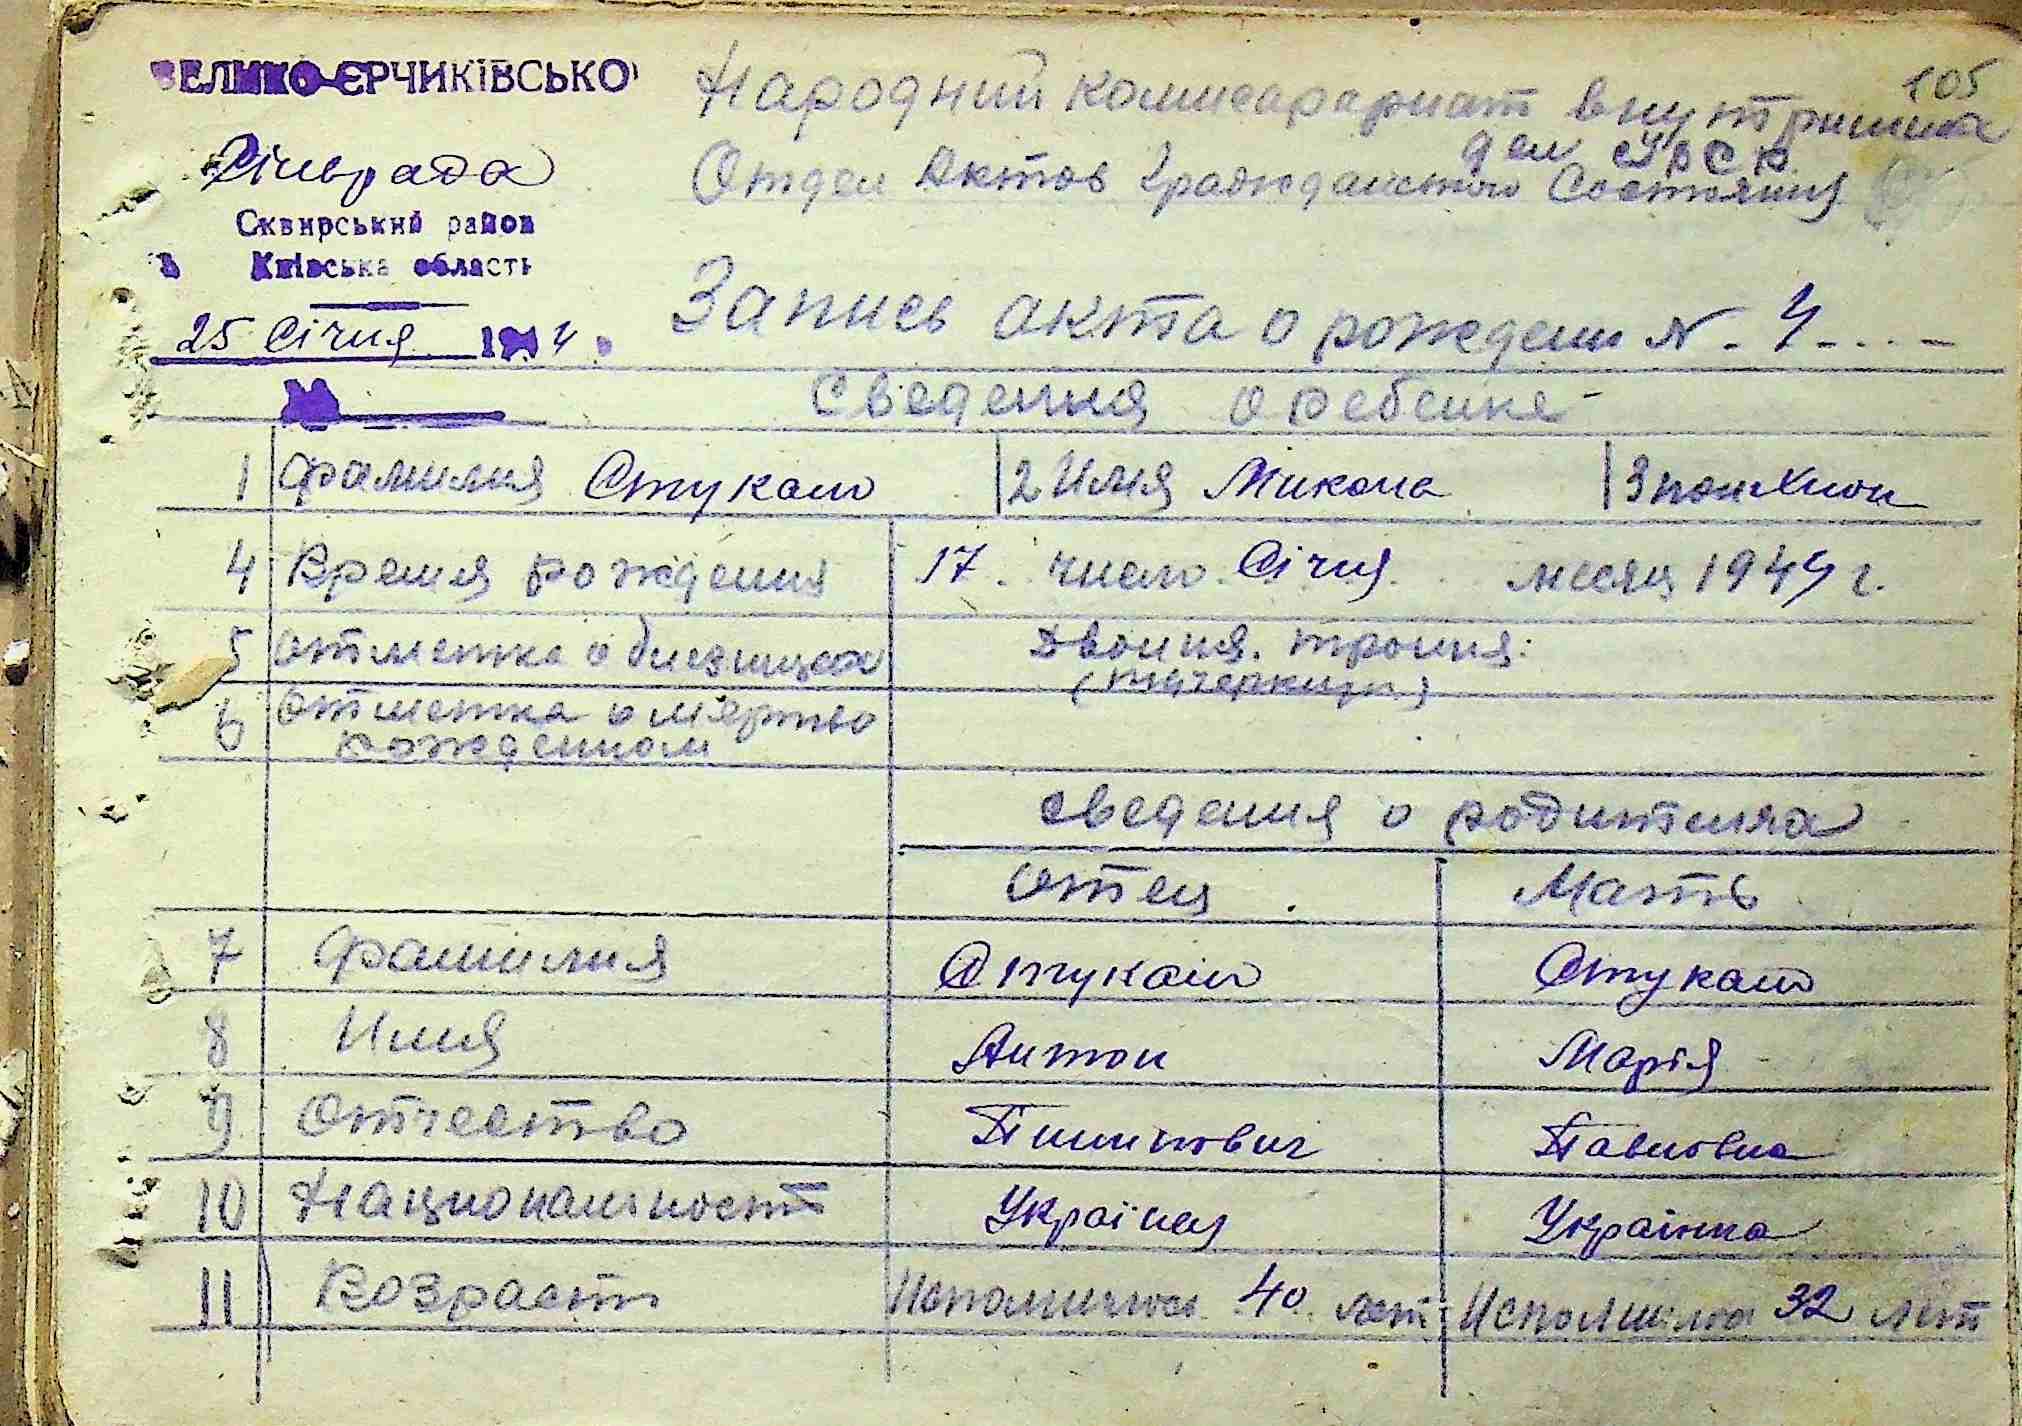 105
ВЕЛИКО-ЄРЧИКІВСЬКОЇ
Сільрада
Сквирський район
Київська область
25 Січня 1944.
Народний комисарариат внутришних
дел УРСР.
Отдел Актов Гражданского Состояния
Запись акта о рождении N. 4....-
Сведения о ребенке
1 Фамилия Стукало 2 Имя Микола 3 пол Хлоп
4 Время рождения 17. число Січня месяц 1944 г.
5 отметка о близнецах Двойня. тройня:
(подчеркнуть)
6 отметка о мертво
рожденном
сведения о родителях
Отец. Мать
7 Фамилия Стукало Стукало
8 Имя Антон Марія
9 Отчество Пилипович Павловна
10 Националност Українец Українка
11 Возраст Исполнилось 40 лет Исполнилось 32 лет